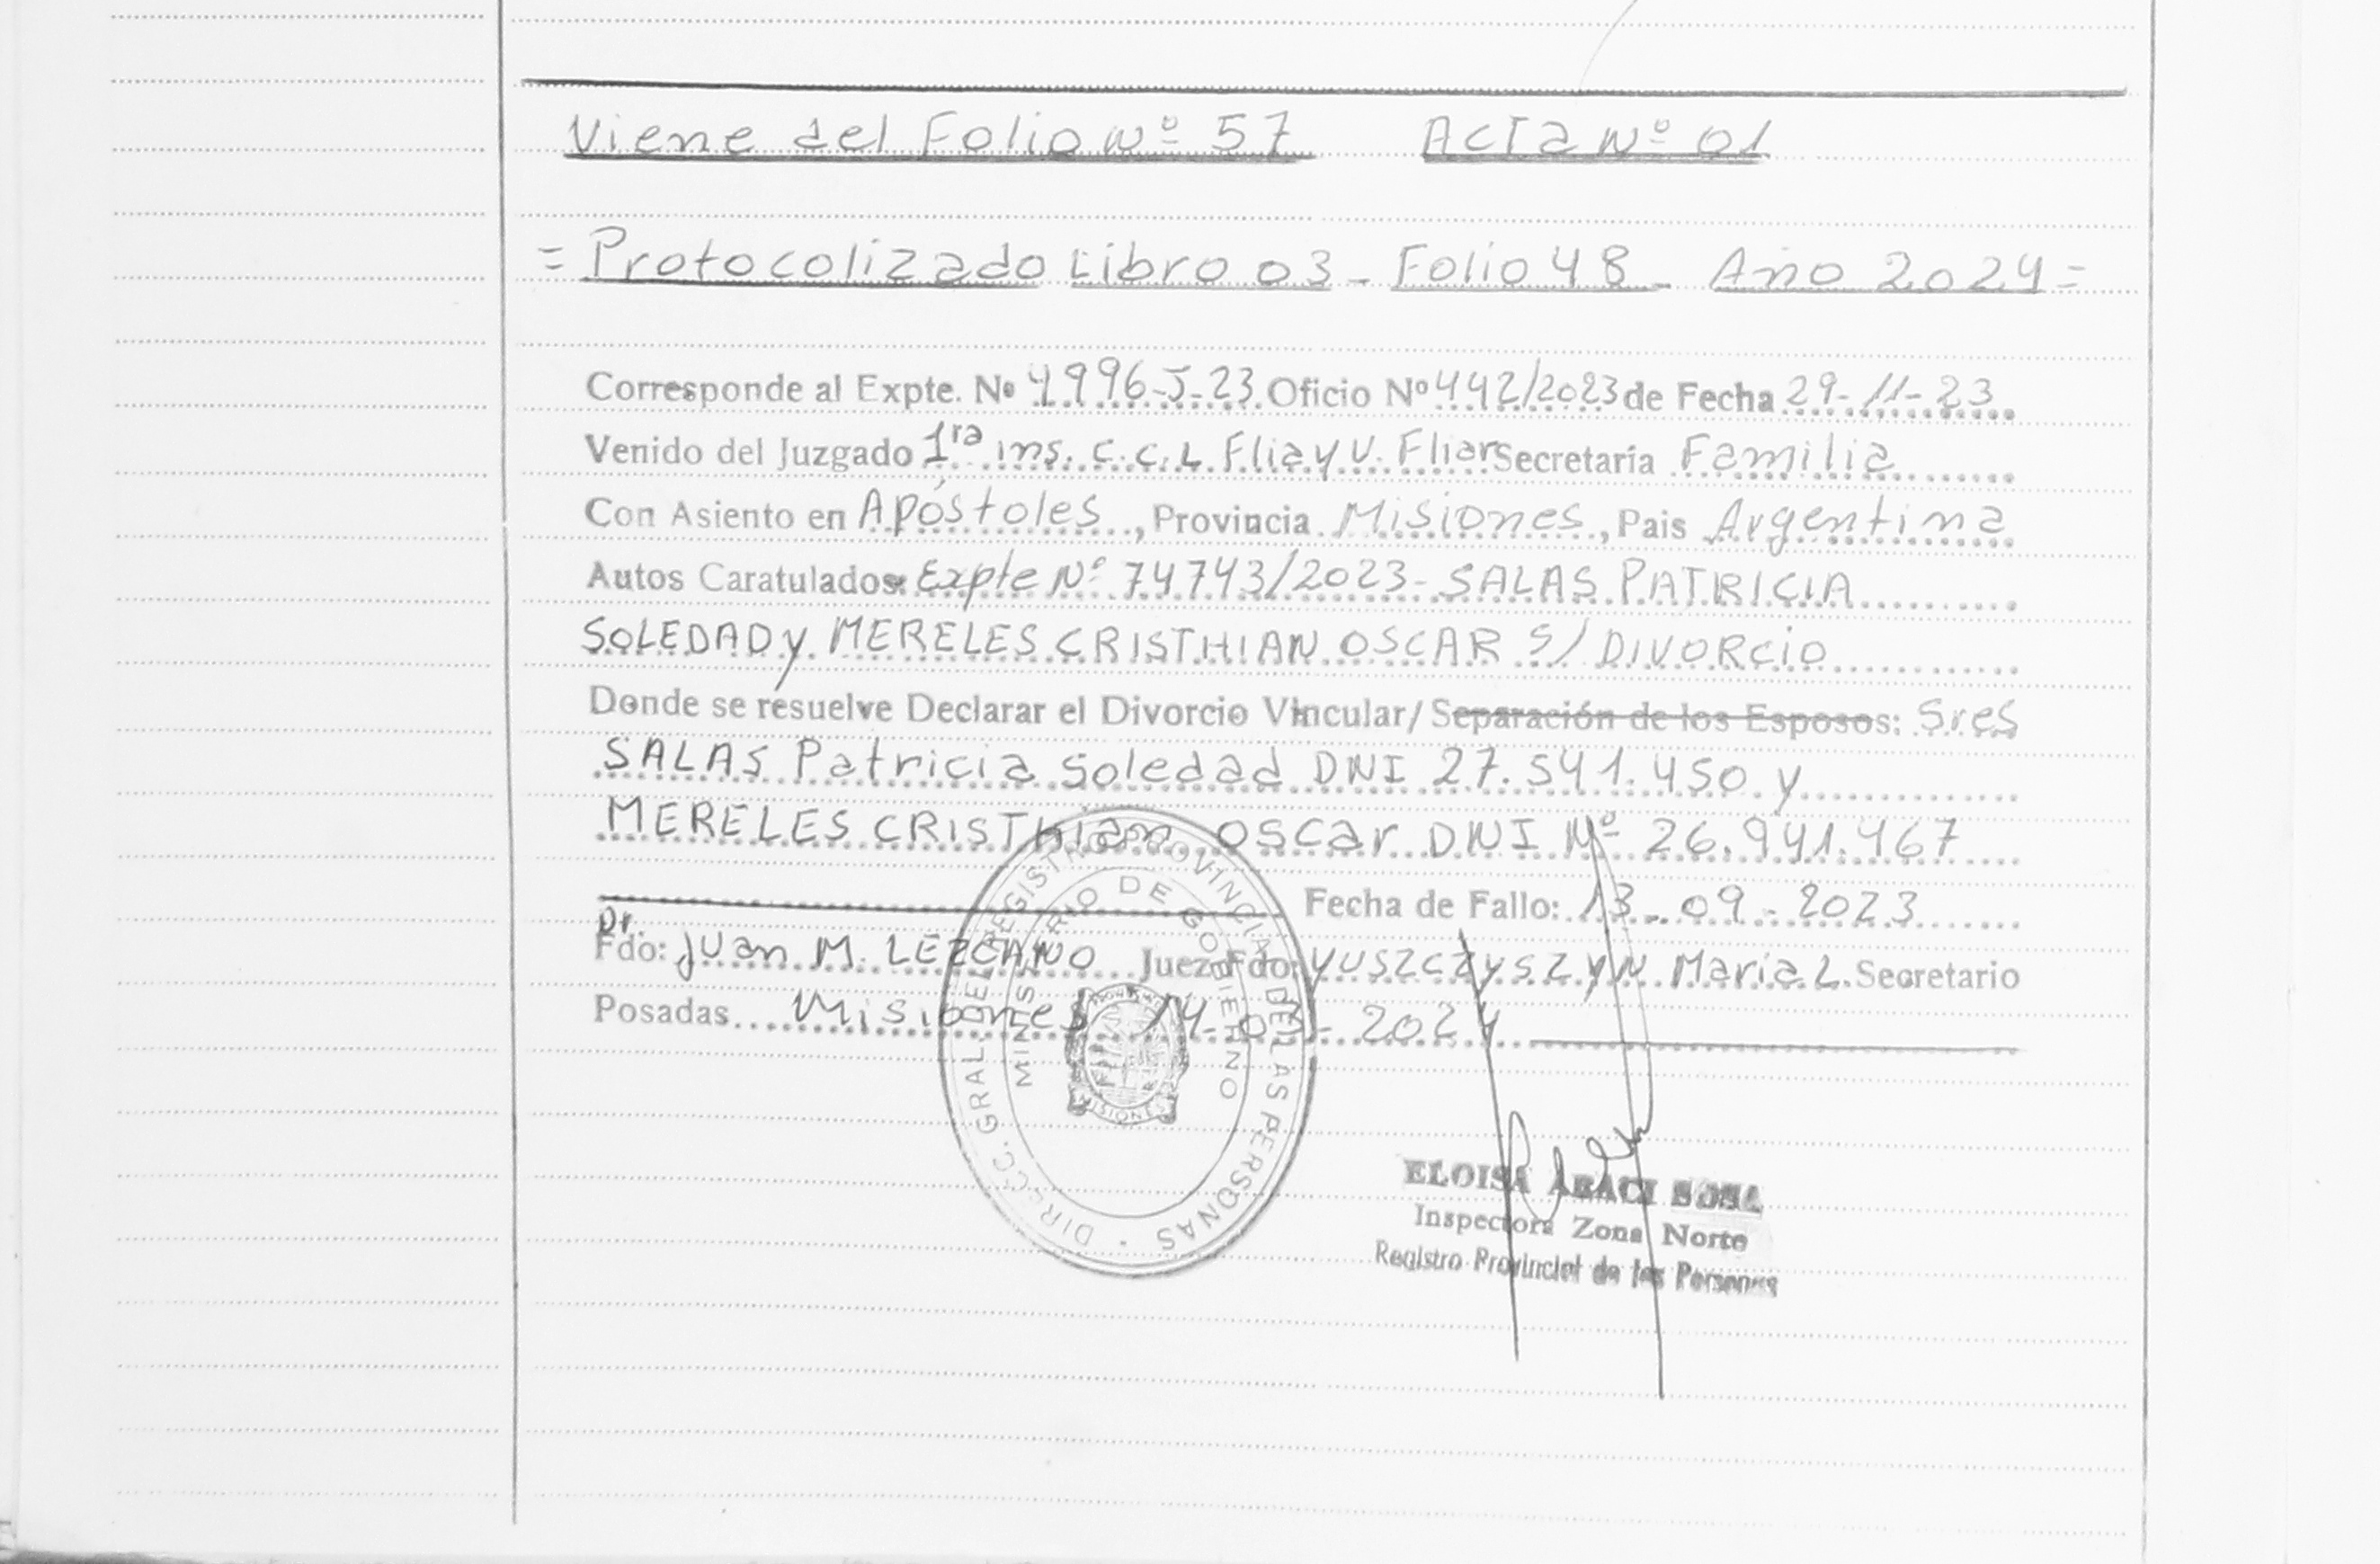 Viene del Folio Nº 57 Acta Nº 01
= Protocolizado Libro 03 - Folio 48 - Año 2024 =
Corresponde al Expte. Nº 4996-J-23 Oficio Nº 442/2023 de Fecha 29-11-23
Venido del Juzgado 1ra ins. C.C.L Flia y V. Fliar Secretaria Familia
Con Asiento en Apóstoles, Provincia Misiones, Pais Argentina
Autos Caratulados: Expte Nº 74743/2023 - SALAS PATRICIA
SOLEDAD y MERELES CRISTHIAN OSCAR S/ DIVORCIO
Donde se resuelve Declarar el Divorcio Vincular/ Separación de los Esposos: Sres
SALAS Patricia Soledad DNI 27.541.450 y
MERELES CRISThian Oscar DNI Nº 26.941.467
Fecha de Fallo: 13-09-2023
Dr.
Fdo: Juan M. LEZCANO Juez Fdo: YUSZCZYSZYN Maria L. Secretario
Posadas Misiones 2024
DIRECC. GRAL DEL REGISTRO PROVINCIAL DE LAS PERSONAS
MINISTERIO DE GOBIERNO
MISIONES
ELOISA SOSA
Inspectora Zona Norte
Registro Provincial de las Personas